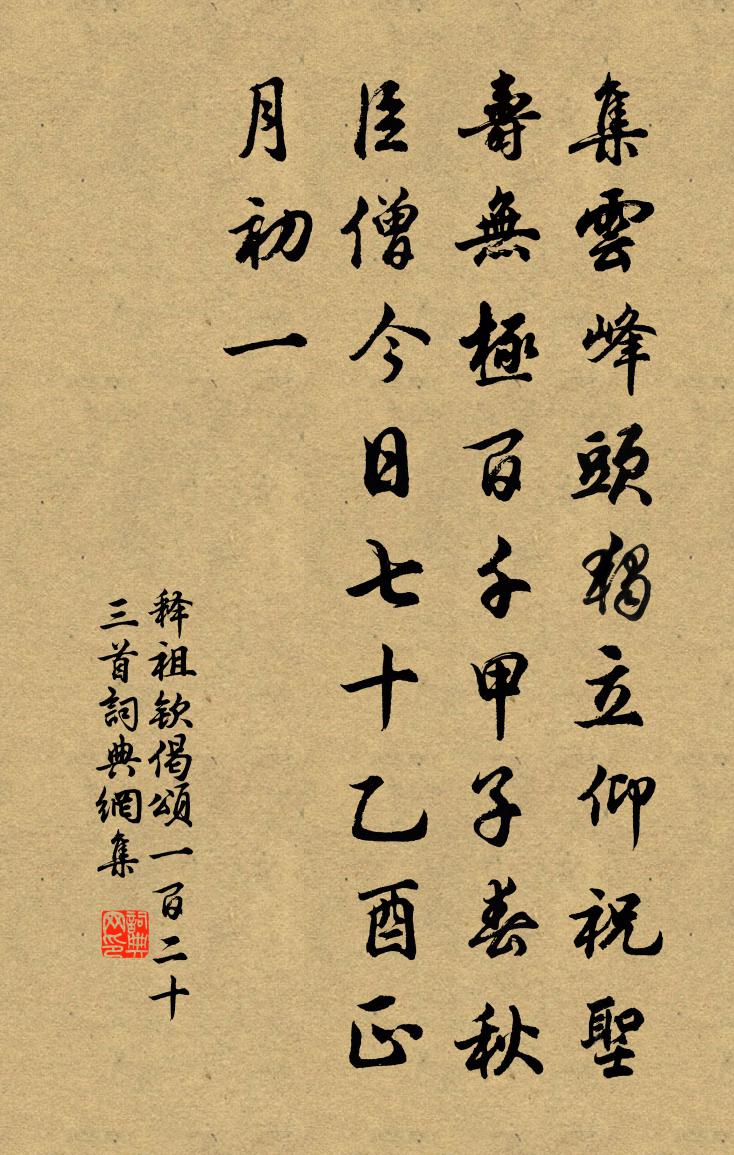 集雲峰頭獨立仰祝聖
壽無極百千甲子春秋
臣僧今日七十乙酉正
月初一
释祖钦偈頌一百二十
三首詞典網集
詞典网印